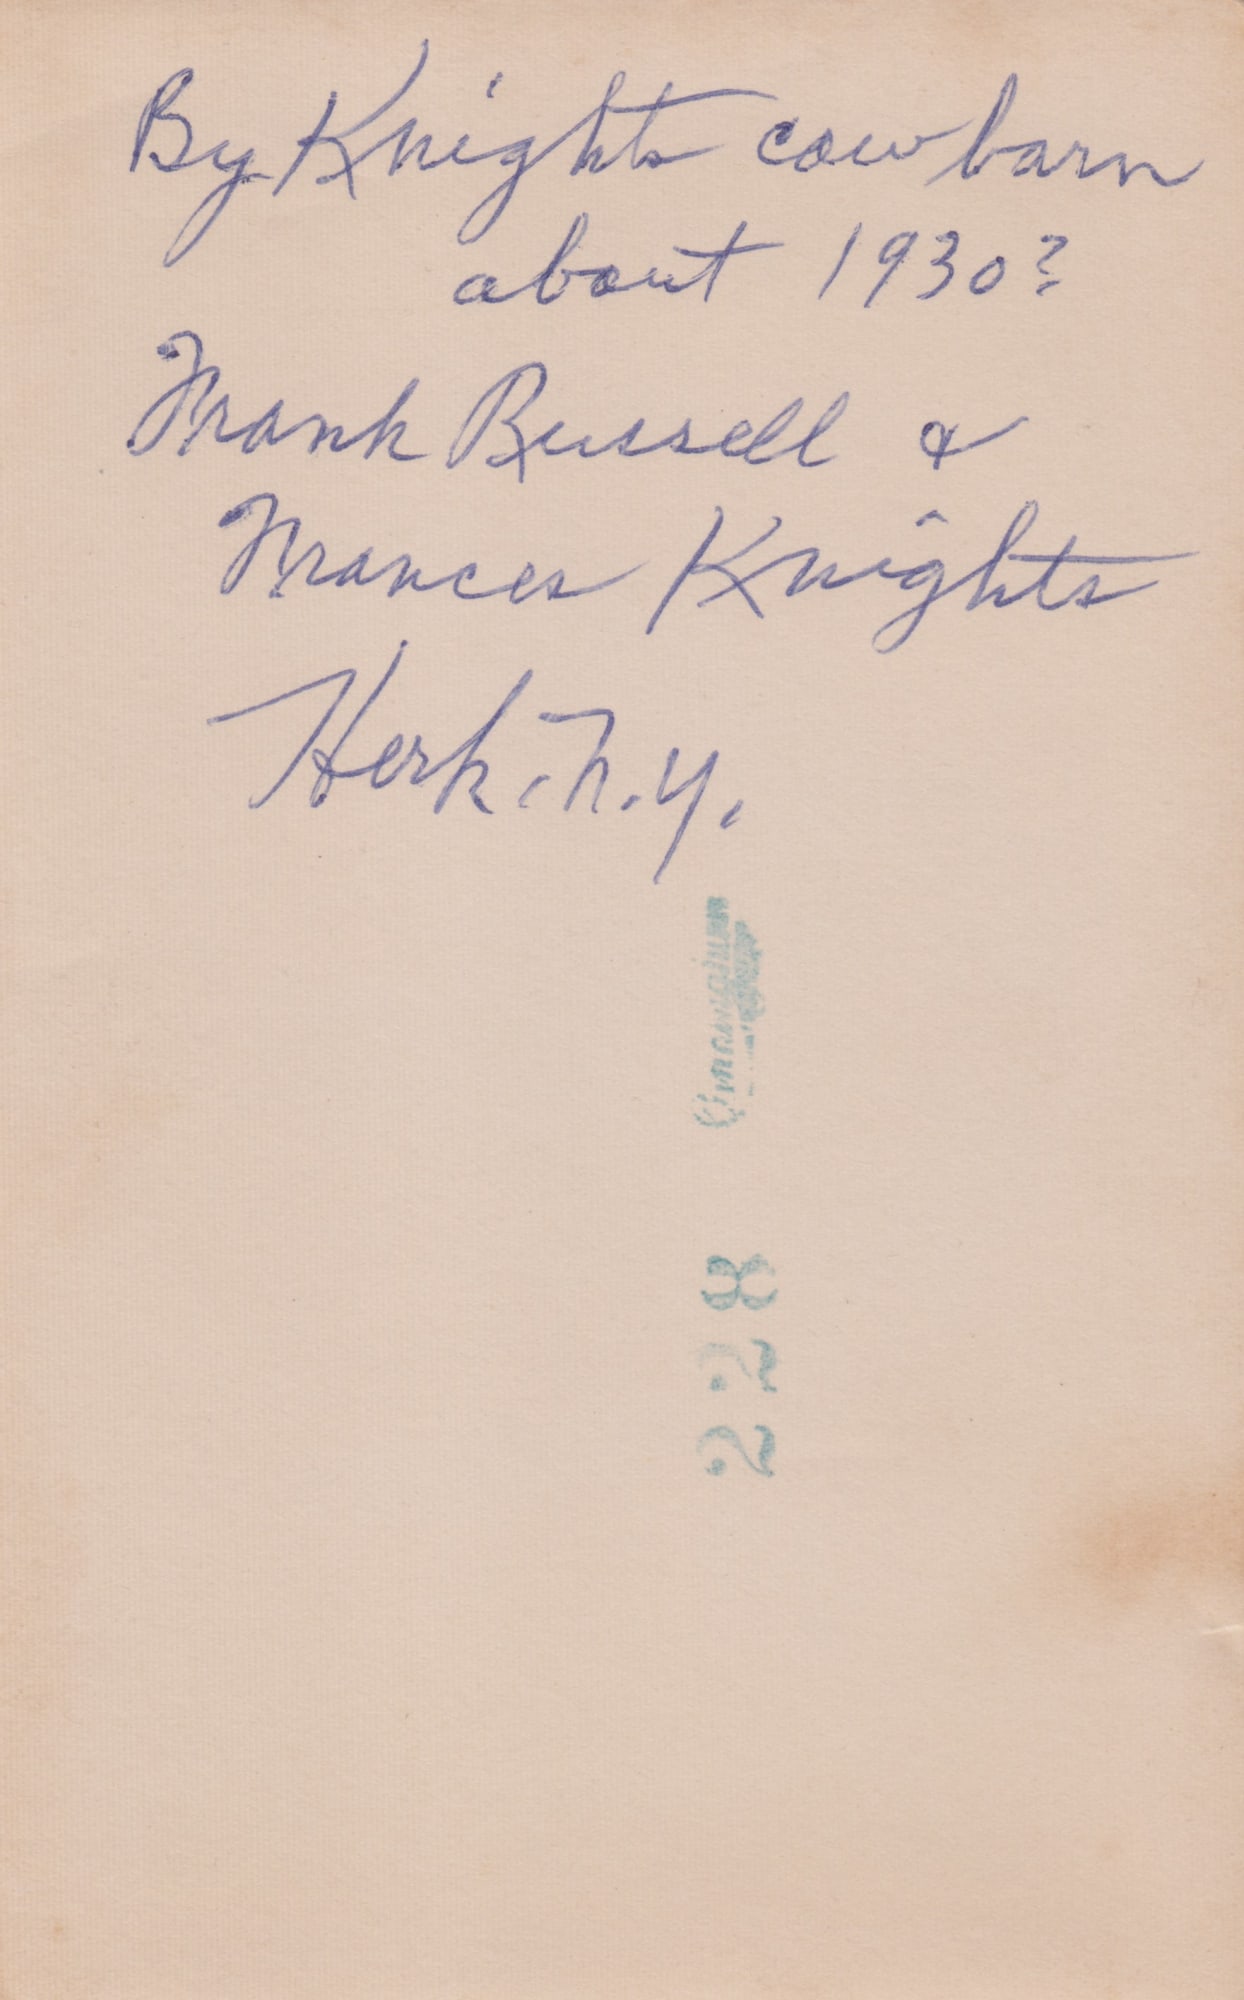 By Knights cow barn
about 1930?
Frank Russell &
Frances Knights
Herk. N.Y.
228